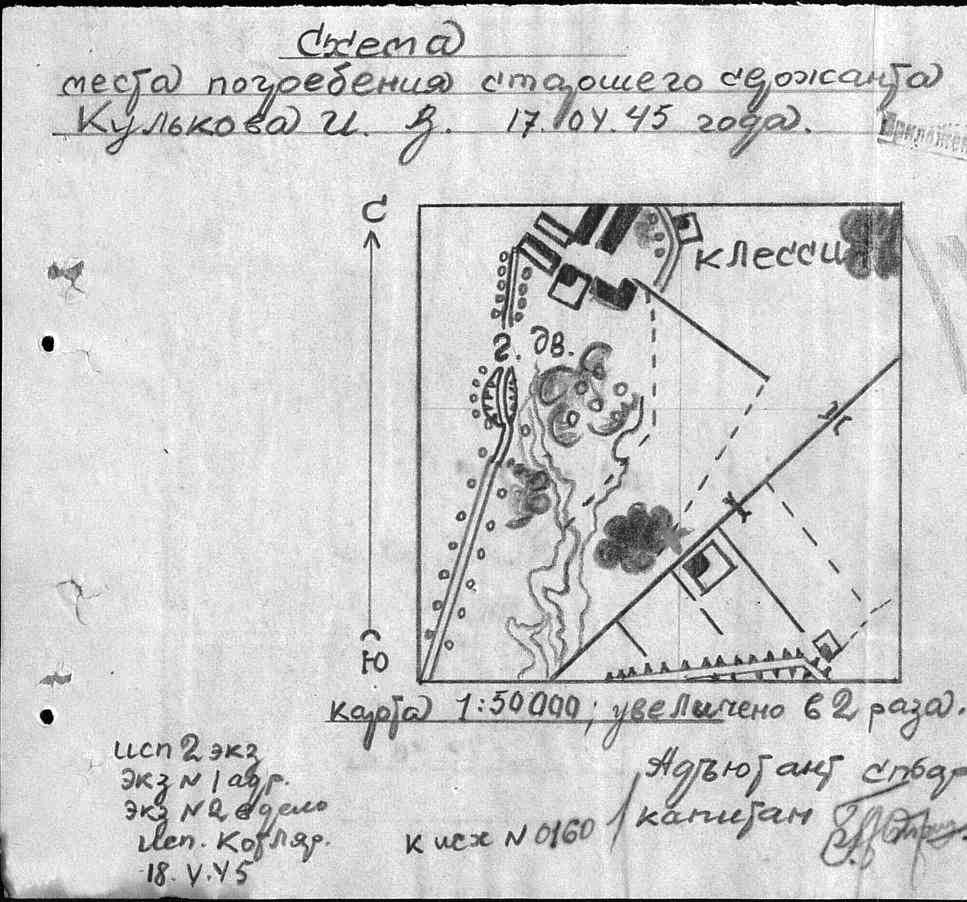 Схема
места погребения старшего сержанта
Кулькова И. В. 17.04.45 года.
С
Клессин
г. дв.
Ю
карта 1:50000; увеличено в 2 раза.
исп 2 экз
экз N 1 адр.
экз N 2 в дело
исп. Котляр.
18.V.45
к исх N 0160
Адъютант спбар
капитан